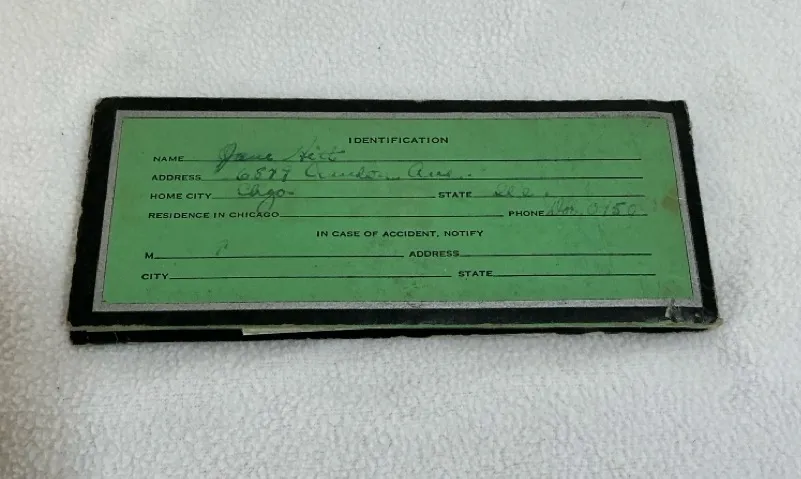 IDENTIFICATION
NAME Jane Hilt
ADDRESS Ave.
HOME CITY Chgo. STATE Ill.
RESIDENCE IN CHICAGO PHONE Dor. 0150
IN CASE OF ACCIDENT, NOTIFY
M ADDRESS
CITY STATE